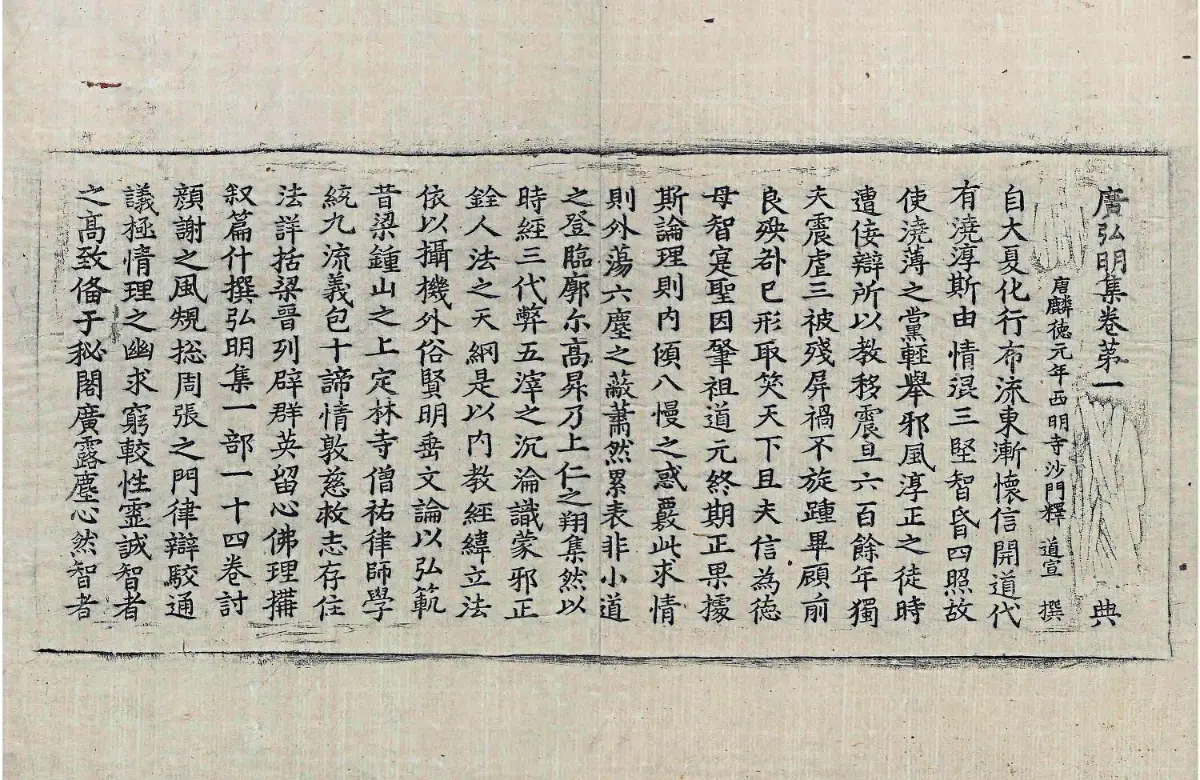 廣弘明集卷苐一 典
唐麟德元年西明寺沙門釋 道宣 撰
自大夏化行布流東漸懷信開道代
有澆淳斯由情混三堅智昏四照故
使澆薄之黨輕舉邪風淳正之徒時
遭佞辯所以教移震旦六百餘年獨
夫震虐三被殘屏禍不旋踵畢顧前
良殃咎已形取笑天下且夫信為德
母智寔聖因肇祖道元終期正果據
斯論理則內傾八慢之惑覈此求情
則外蕩六塵之蔽蕭然累表非小道
之登臨廓尒高昇乃上仁之翔集然以
時經三代弊五滓之沉淪識蒙邪正
銓人法之天網是以内教經緯立法
依以攝機外俗賢明垂文論以弘軌
昔梁鍾山之上定林寺僧祐律師學
統九流義包十諦情敦慈救志存住
法詳括梁晉列辟群英留心佛理搆
叙篇什撰弘明集一部一十四卷討
顔謝之風規捴周張之門律辯駮通
議極情理之幽求窮較性靈誠智者
之高致俻于秘閣廣露塵心然智者